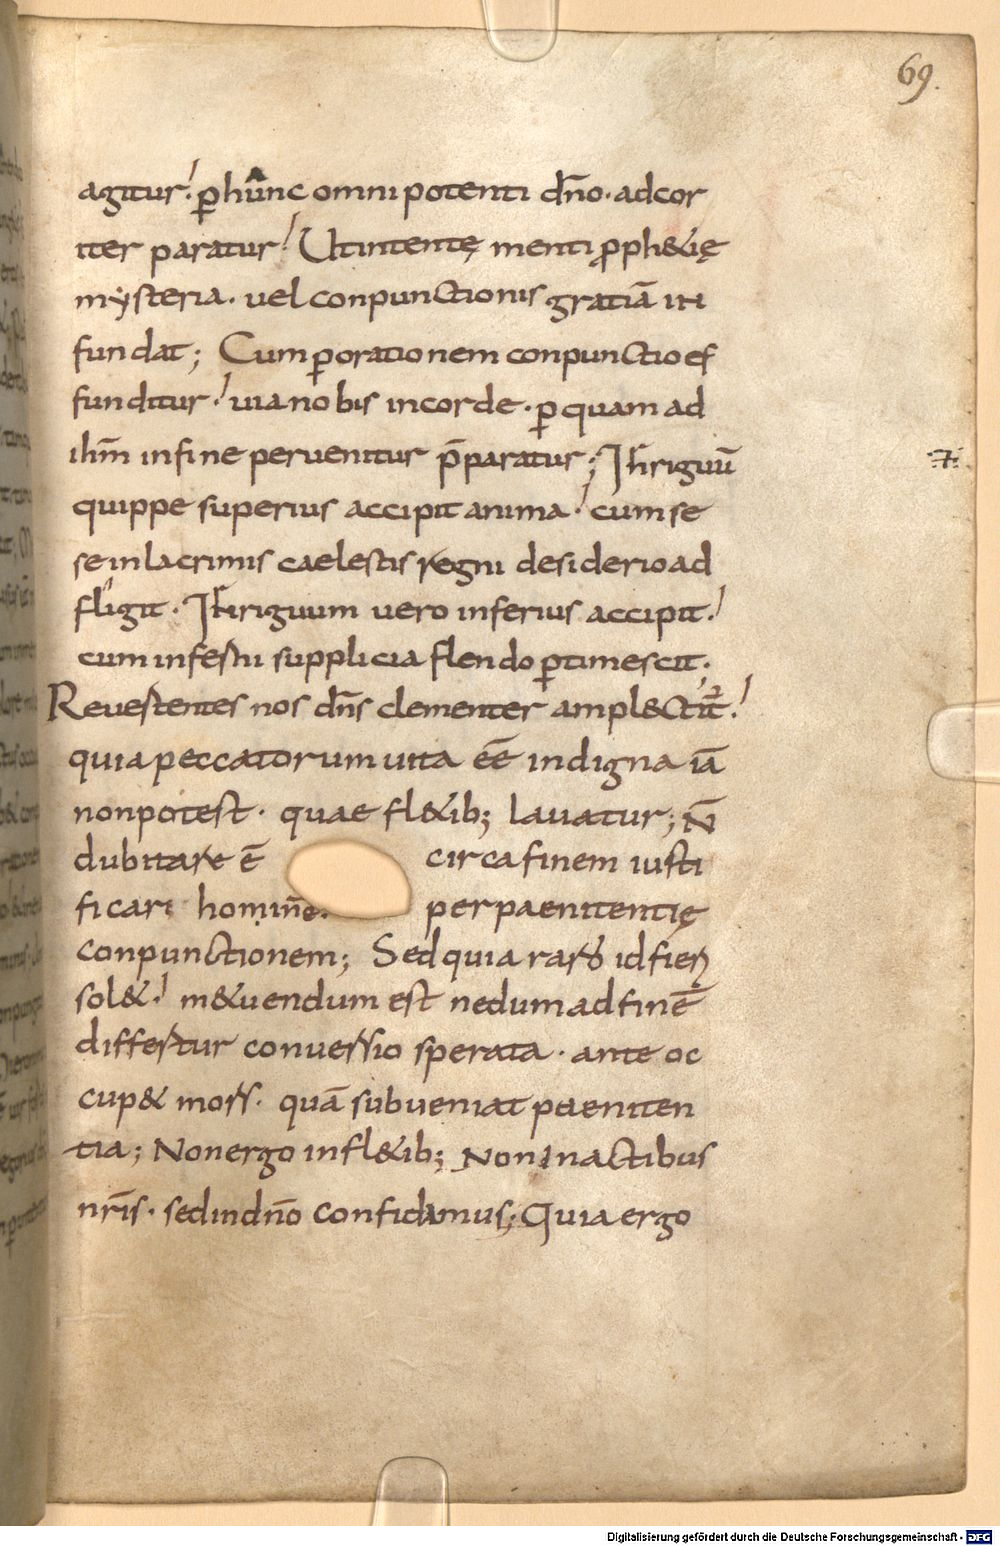 69.
agitur; ꝑ hunc omnipotenti dn̄o · ad cor
iter paratur; Ut intentę menti ꝓph&ię
mysteria · vel conpunctionis gratiā in
fundat; Cum ꝑ orationem conpunctio ef
funditur · via nobis in corde · ꝑ quam ad
ihm̄ in fine pervenitur p̄paratur; Inriguū
quippe superius accipit anima · cum se
se in lacrimis caelestis regni desiderio ad
fligit · Inriguum vero inferius accipit ·
cum inferni supplicia flendo ꝑtimescit ·
Revertentes nos dn̄s clementer ampl&tit̄ ·
quia peccatorum vita eē indigna iā
non potest · quae fl&ib; lavatur; N̄
dubitare ē circa finem iusti
ficari homines per paenitentię
conpunctionem; Sed quia raro id fieri
sol& · m&uendum est ne dum ad finē
differtur conversio sperata · ante oc
cup& mors · quā subveniat paeniten
tia; Non ergo in fl&ib; non in actibus
nr̄is · sed in dn̄o confidamus; Quia ergo
Digitalisierung gefördert durch die Deutsche Forschungsgemeinschaft - DFG